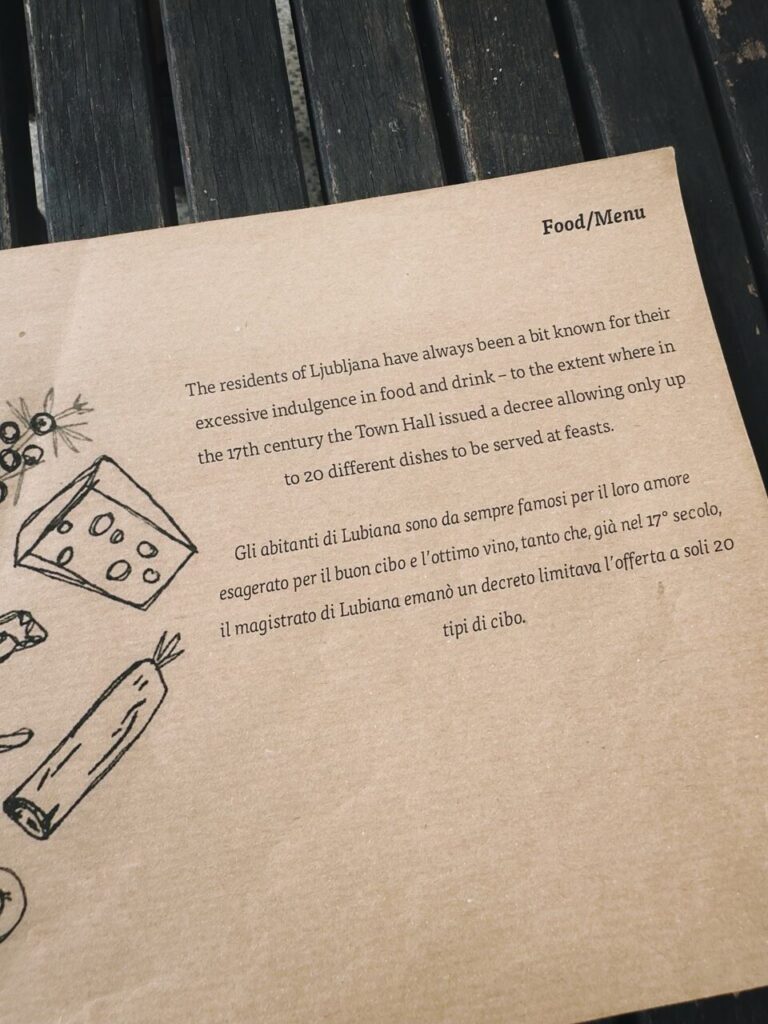 Food/Menu
The residents of Ljubljana have always been a bit known for their
excessive indulgence in food and drink – to the extent where in
the 17th century the Town Hall issued a decree allowing only up
to 20 different dishes to be served at feasts.
Gli abitanti di Lubiana sono da sempre famosi per il loro amore
esagerato per il buon cibo e l'ottimo vino, tanto che, già nel 17° secolo,
il magistrato di Lubiana emanò un decreto limitava l'offerta a soli 20
tipi di cibo.